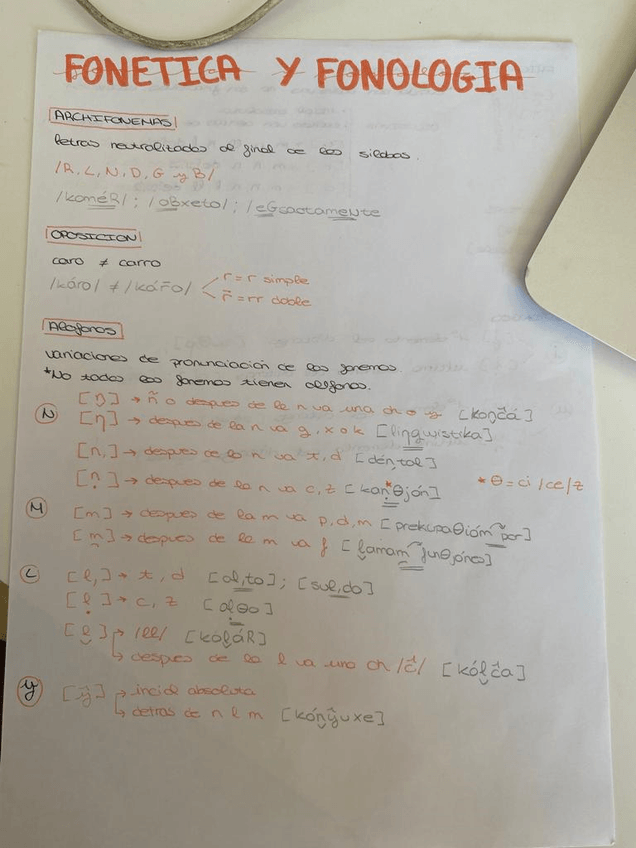 FONETICA Y FONOLOGIA
ARCHIFONEMAS
letras neutralizadas al final de las silabas.
/R, L, N, D, G y B/
/koméR/ ; /oBxeto/ ; /eGsactameNte
OPOSICION
caro ≠ carro
/káro/ ≠ /kár̄o/
r = r simple
r̄ = rr doble
Alofonos
variaciones de pronunciación de los fonemas.
*No todos los fonemas tienen alófonos.
N
→ ñ o despues de la n va una ch o y
[ŋ] → despues de la n va g, x o k [lingwistika]
[n,] → despues de la n va t, d [dén,tal]
[ṇ] → despues de la n va c, z [kanθjón]
* θ = ci / ce / z
M
[m] → despues de la m va p, d, m [prekupaθióm por]
→ despues de la m va f
L
[l,] → t, d [al,to] ; [sul,do]
[ḷ] → c, z [alθo]
→ /ll/
↳ despues de la l va una ch /ĉ/
y
[ŷ] → inicial absoluta
↳ detras de n l m [kónŷuxe]